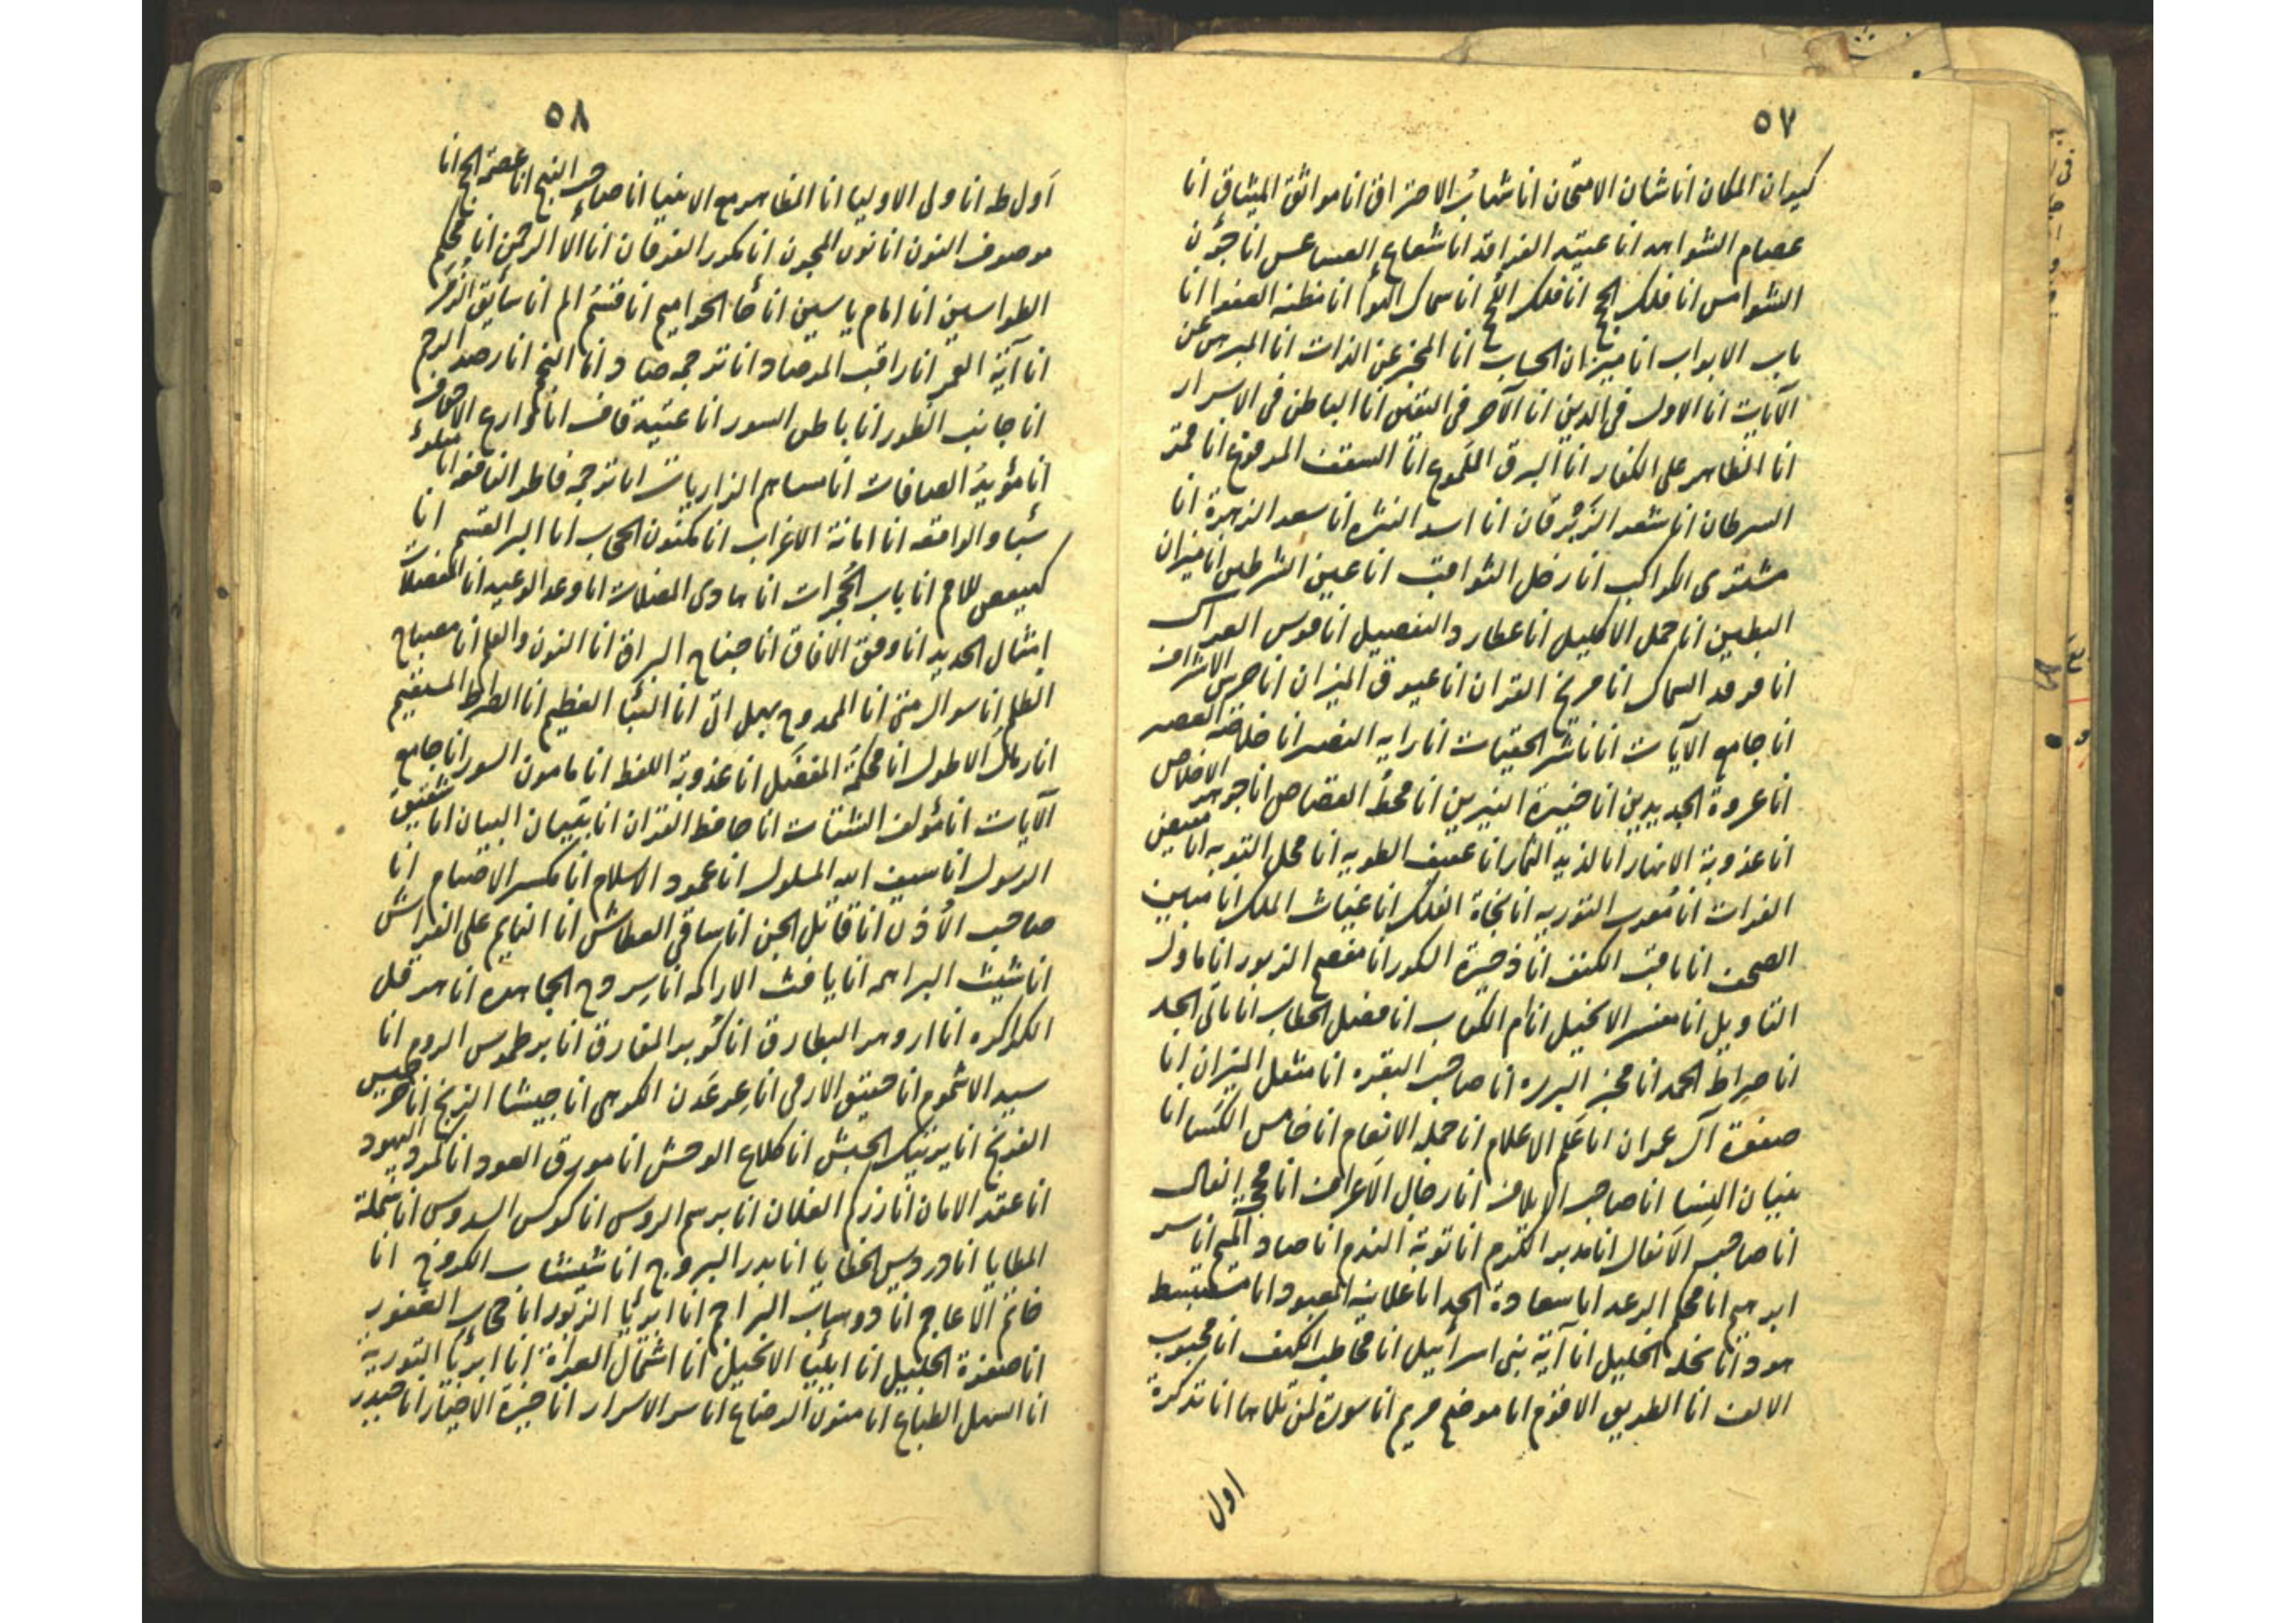 ٥٧
كيوان المكان انا شان الامتحان انا شهاب الاحتراق انا مواثق الميثاق انا
عصام الشواهد انا عتيد الفراقد انا شعاع العساعس انا جون
الشوامس انا فلك الجج انا سماك البهو انا مظنه الصفوا انا
باب الابواب انا ميزان الحساب انا المخبر عن الذات انا المبرهن عن
الآيات انا الاول في الدين انا الآخر في اليقين انا الباطن في الاسرار
انا الظاهر على الكفار انا البرق اللموع انا السقف المرفوع انا
السرطان انا شعر الزبرقان انا اسد النثره انا سعد الزهرة انا
مشتوى الكواكب انا زحل الثواقب انا عين الشرطين انا ميزان
البطين انا حمل الاكليل انا عطارد التفصيل انا قوس العراك
انا فرقد السماك انا مريخ القران انا عيوق الميزان انا حرس الاشراف
انا جامع الآيات انا ناشر الحقيبات انا رايه النصر انا العصر
انا عروة الجديدين انا خيرة النيرين انا محط القصاص انا جوهر الاخلاص
انا عذوبة الانهار انا لذيذ الثمار انا عفيف الطويه انا محل التوبه انا مفيض
الفرات انا مُعرب التوريه انا نجاة الفلك انا غياث الملك انا مبين
الصحف انا ثاقب الكثف انا ذخيرة الكور انا مفصح الزبور انا ماول
التاويل انا مفسر الانجيل انا ام الكتاب انا فصل الخطاب انا ثاني الجد
انا صراط الحمد انا مخبر البرره انا صاحب البقره انا مثقل الميزان انا
صفوة آل عمران انا علم الاعلام انا جمله الانعام انا خامس الكسا انا
بنيان النسا انا صاحب الايلاف انا رجال الاعراف انا
انا صاحب الانفال انا مدبر الكرم انا توبة الندم انا صاد الميم انا سر
ابراهيم انا محكم الرعد انا سعادة الجد انا علانيه المعبود انا مستنبط
هود انا نخله الجليل انا آية بني اسرائيل انا مخاطب الكهف انا محبوب
الالف انا الطريق الاقوم انا موضح مريم انا سورة لمن تلاها انا تذكرة
اول
٥٨
اول طه انا ولى الاوليا انا الظاهر مع الانبيا انا صاحب انا عصمة انا
موصوف النون انا نون الجون انا مكرر الفرقان انا آلا الرحمن انا محكم
الطواسين انا امام ياسين انا حا الحواميم انا قسم الم انا سابق الزمر
انا آية القمر انا راقب المرصاد انا ترجمه صاد انا النجم انا رصد الرجم
انا جانب الطور انا باطن السور انا عتيد قاف انا قوارع الاحقاف
انا مؤيد الصافات انا مساهم الذاريات انا ترجمه فاطر انا متلو
سبا والواقعه انا امانة الاعراب انا مكنون الحجاب انا البر القسم انا
كهيعص للام انا باب الحجرات انا هادى الضلات انا وعد الوعيد انا
امثال الحديد انا وفق الافاق انا جناح البراق انا النون والقلم انا مصباح
الظلم انا سوال متى انا الممدوح بهل اتى انا النبأ العظيم انا الصراط المستقيم
انا زمان الاطول انا محكمة المفضل انا عذوبة اللفظ انا مامون السور انا جامع
الآيات انا مؤلف الشتات انا حافظ القران انا تبيان البيان انا شقيق
الرسول انا سيف الله المسلول انا عمود الاسلام انا مكسر الاصنام انا
صاحب الأذن انا قاتل الجن انا ساقي العطاش انا النايم على الفراش
انا شيث البراهمه انا يافث الاراكه انا سروح الجماهره انا هرقل
الكراكره انا ارهر البطارق انا كوبر المفارق انا برطموس الروم انا
سيد الاشموم انا حقيق الارمن انا عرعدن الكرجى انا جيشا الزنج انا
الفرنج انا بيرتيك الحبش انا كلاع الوحش انا مورق العود انا اليهود
انا عقد الامان انا زرم الغلان انا برسم الروس انا كوكس السدوس انا شملة
المطايا انا دردوس الخطايا انا بدر البروج انا شيشاب الكروخ انا
خاتم الاعاجم انا دوسياب البراجم انا ابريا الزبور انا حجاب الغفور
انا صفوة الجليل انا ايليا الانجيل انا اشتمال العراة انا ابريا التوريه
انا السهل الطباع انا منون الرضاع انا سر الاسرار انا خيرة الاخيار انا حيدر